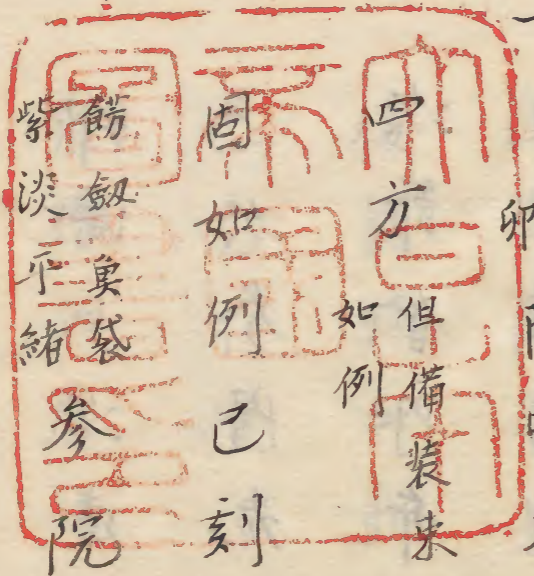 卯
四方但備装束
如例
固如例已刻
餝劔魚袋
紫淡平緒参院